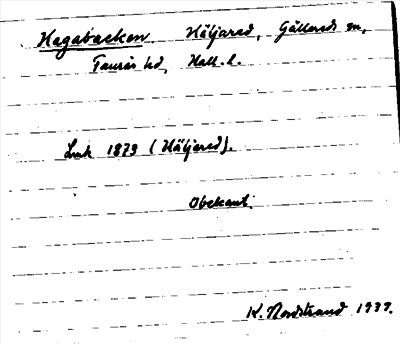 Hagabacken. Häljared, Gällareds sn,
Faurås hd, Hall. l.
Lmk 1879 (Häljered).
Obekant.
K. Nordstrand 1939.